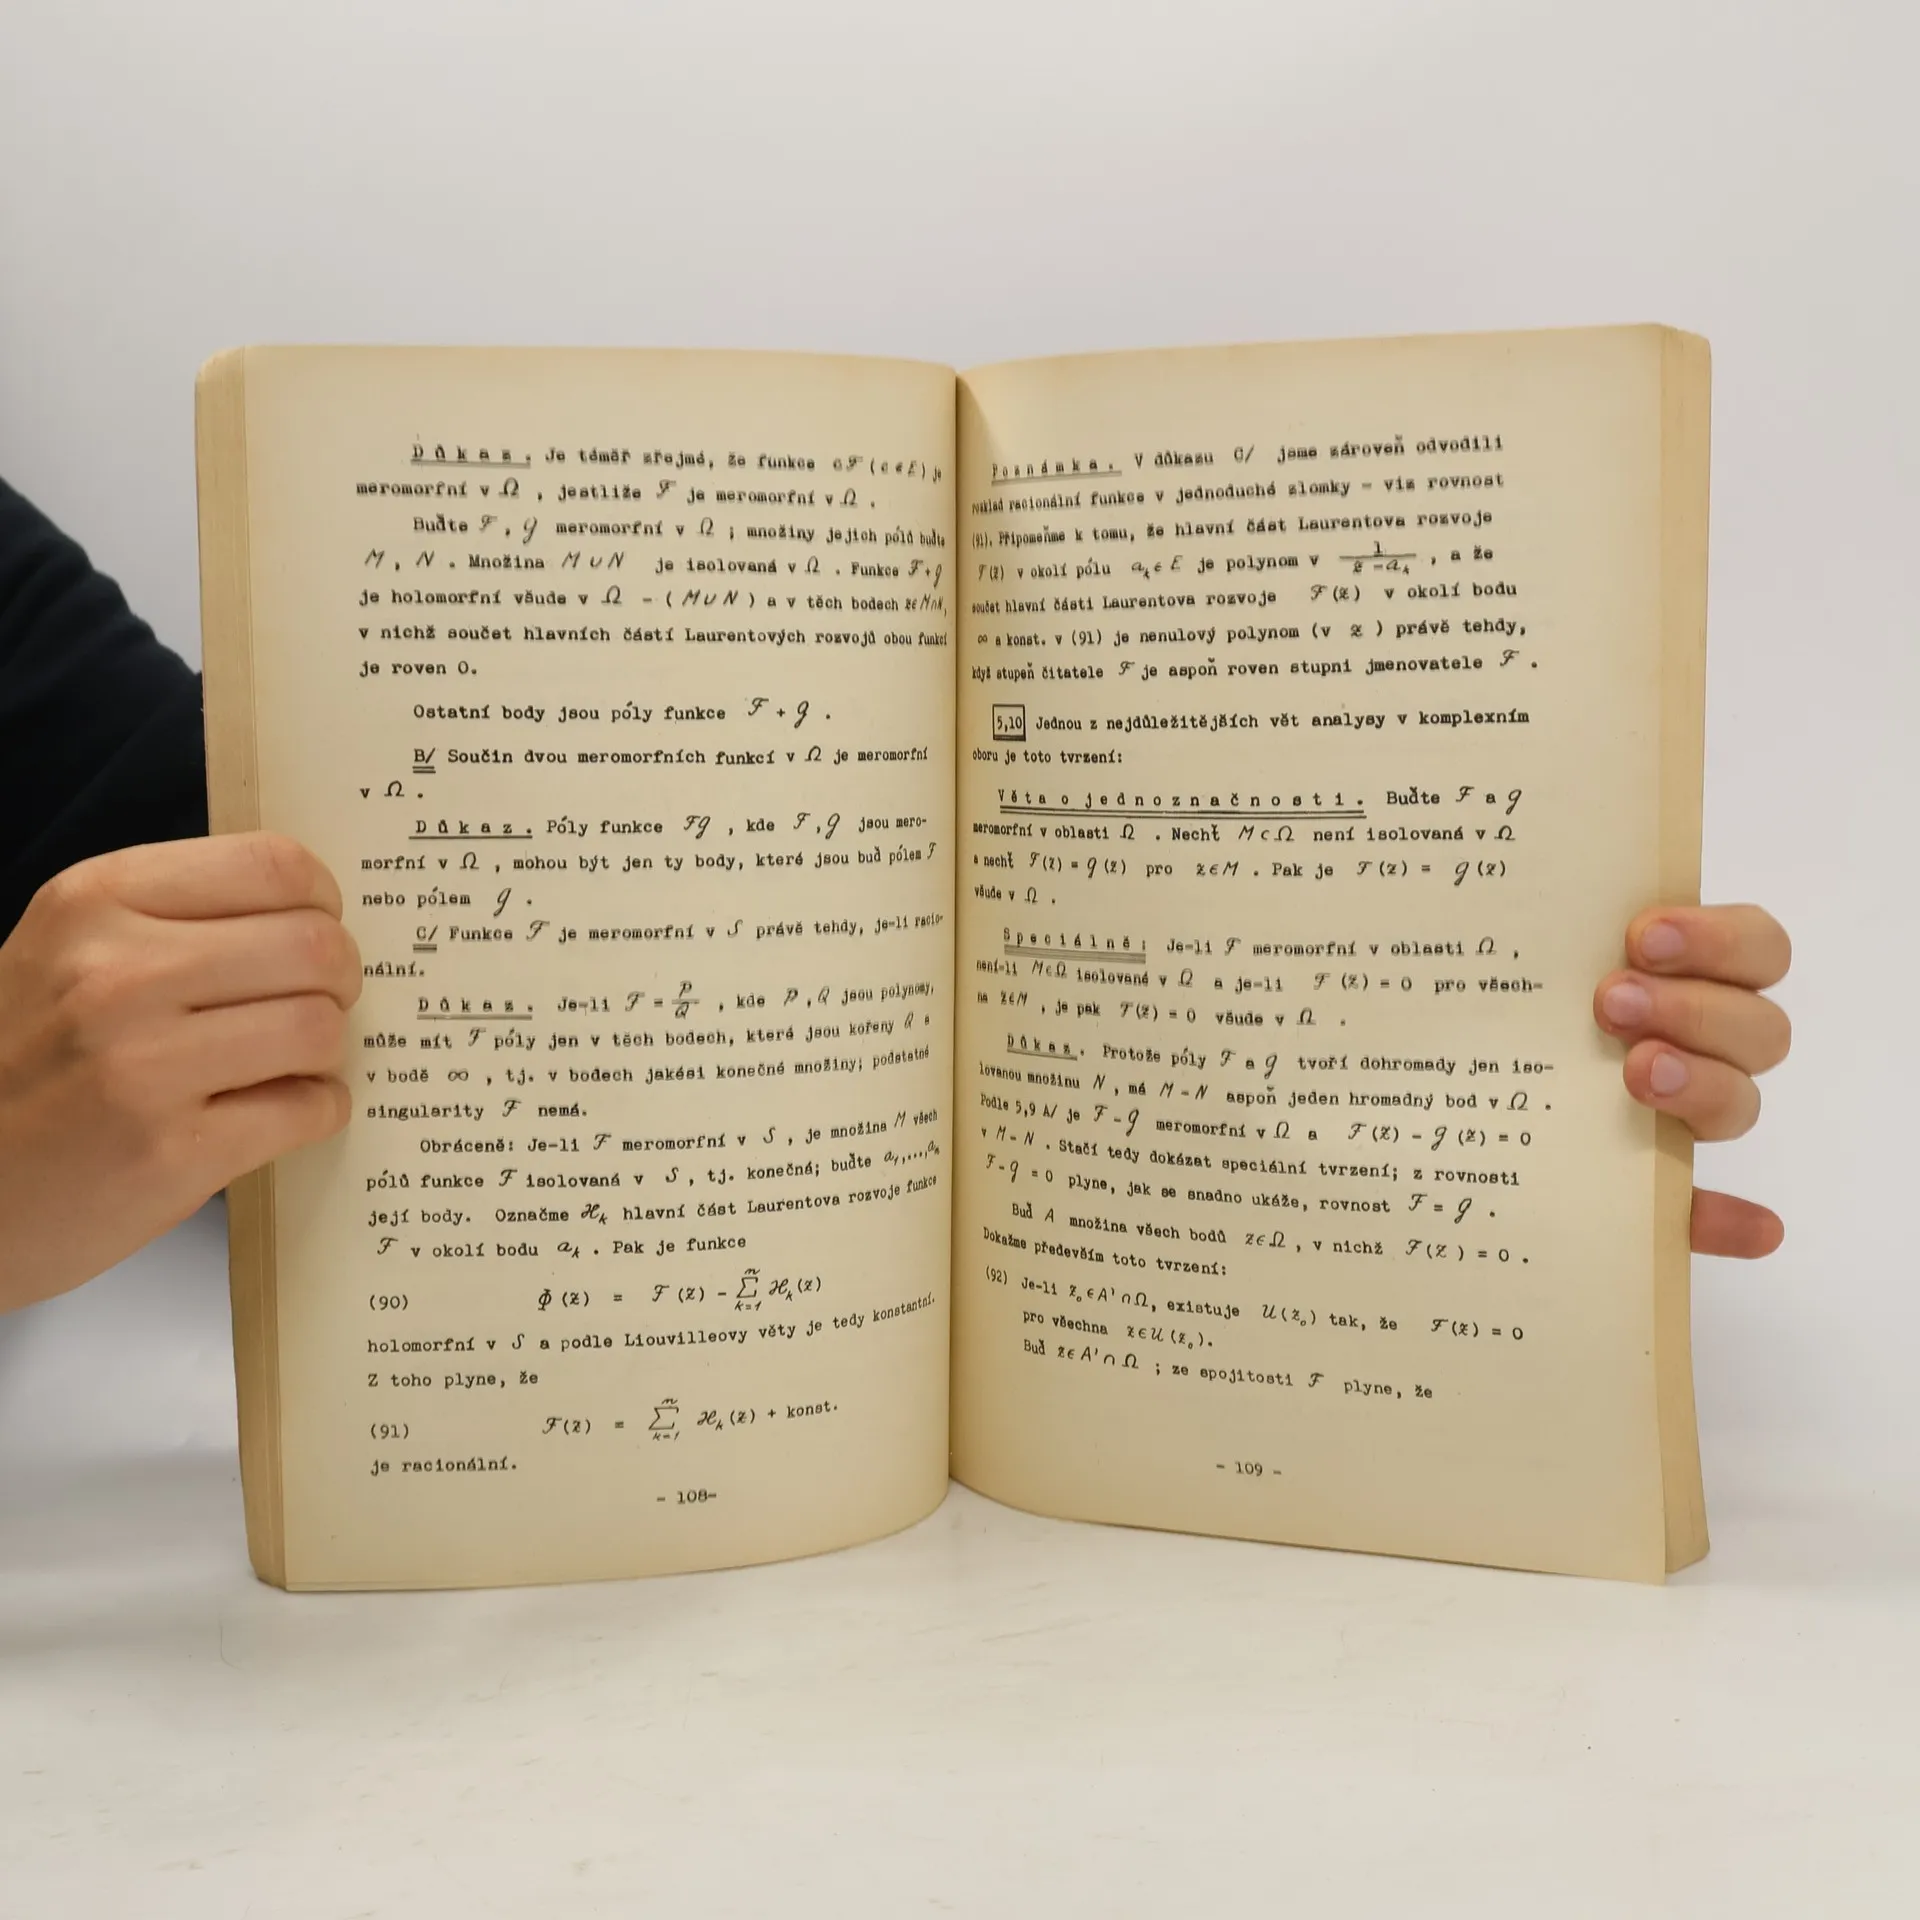 Důkaz. Je téměř zřejmé, že funkce cF (c ∈ E) je
meromorfní v Ω , jestliže F je meromorfní v Ω .
Buďte F, G meromorfní v Ω ; množiny jejich pólů buďte
M, N . Množina M ∪ N je isolovaná v Ω . Funkce F + G
je holomorfní všude v Ω - ( M ∪ N ) a v těch bodech z ∈ M ∩ N,
v nichž součet hlavních částí Laurentových rozvojů obou funkcí
je roven 0.
Ostatní body jsou póly funkce F + G .
B/ Součin dvou meromorfních funkcí v Ω je meromorfní
v Ω .
Důkaz. Póly funkce FG , kde F, G jsou mero-
morfní v Ω , mohou být jen ty body, které jsou buď pólem F
nebo pólem G .
C/ Funkce F je meromorfní v S právě tehdy, je-li racio-
nální.
Důkaz. Je-li F = P/Q , kde P, Q jsou polynomy,
může mít F póly jen v těch bodech, které jsou kořeny Q a
v bodě ∞ , tj. v bodech jakési konečné množiny; podstatné
singularity F nemá.
Obráceně: Je-li F meromorfní v S , je množina M všech
pólů funkce F isolovaná v S , tj. konečná; buďte a₁,...,aₙ
její body. Označme ℋₖ hlavní část Laurentova rozvoje funkce
F v okolí bodu aₖ . Pak je funkce
(90) Φ (z) = F (z) - ∑ₖ₌₁ⁿ ℋₖ (z)
holomorfní v S a podle Liouvilleovy věty je tedy konstantní.
Z toho plyne, že
(91) F(z) = ∑ₖ₌₁ⁿ ℋₖ (z) + konst.
je racionální.
- 108-
Poznámka. V důkazu C/ jsme zároveň odvodili
rozklad racionální funkce v jednoduché zlomky - viz rovnost
(91). Připomeňme k tomu, že hlavní část Laurentova rozvoje
F(z) v okolí pólu aₖ ∈ E je polynom v 1/(z - aₖ) , a že
součet hlavní části Laurentova rozvoje F(z) v okolí bodu
∞ a konst. v (91) je nenulový polynom (v z ) právě tehdy,
když stupeň čitatele F je aspoň roven stupni jmenovatele F .
5,10 Jednou z nejdůležitějších vět analysy v komplexním
oboru je toto tvrzení:
Věta o jednoznačnosti. Buďte F a G
meromorfní v oblasti Ω . Nechť M ⊂ Ω není isolovaná v Ω
a nechť F(z) = G(z) pro z ∈ M . Pak je F(z) = G(z)
všude v Ω .
Speciálně: Je-li F meromorfní v oblasti Ω ,
není-li M ⊂ Ω isolovaná v Ω a je-li F (z) = 0 pro všech-
na z ∈ M , je pak F(z) = 0 všude v Ω .
Důkaz. Protože póly F a G tvoří dohromady jen iso-
lovanou množinu N , má M - N aspoň jeden hromadný bod v Ω .
Podle 5,9 A/ je F - G meromorfní v Ω a F(z) - G(z) = 0
v M - N . Stačí tedy dokázat speciální tvrzení; z rovnosti
F - G = 0 plyne, jak se snadno ukáže, rovnost F = G .
Buď A množina všech bodů z ∈ Ω , v nichž F(z) = 0 .
Dokažme především toto tvrzení:
(92) Je-li z₀ ∈ A' ∩ Ω, existuje U(z₀) tak, že F(z) = 0
pro všechna z ∈ U(z₀).
Buď z ∈ A' ∩ Ω ; ze spojitosti F plyne, že
- 109 -